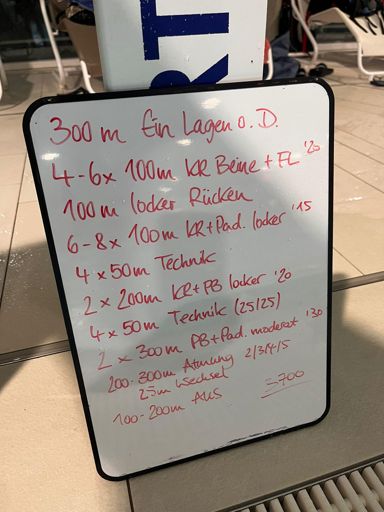 RT
300m Ein Lagen o. D.
4-6x 100m KR Beine + FL '20
100m locker Rücken
6-8x 100m KR+Pad. locker '15
4 x 50m Technik
2 x 200m KR+PB locker '20
4 x 50m Technik (25/25)
2 x 300m PB+Pad. moderat '30
200-300m Atmung 2/3/4/5
25m Wechsel
100-200m Aus